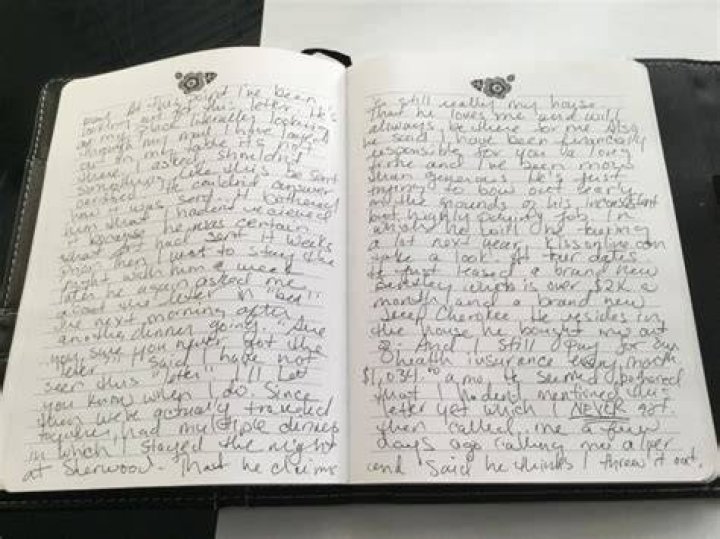 point I've been
looking out for this letter. He's
at my place literally looking
through my mail I have laying
out on my table it's not
there. I asked shouldn't
something like this be sent
certified. He couldn't answer
how it was sent. It bothered
him that I hadn't received
it because he was certain
had sent it weeks
prior. Then I went to stay the
night with him a week
later he again asked me
about the letter in "bed"
the next morning after
another dinner going, "Are
you sure you never got the
letter". Said I have not
seen this letter" I'll let
you know when I do. Since
then we've actually traveled
together, had multiple dinners
in which I stayed the night
at Sherwood. That he claims
is still really my house
That he loves me and will
always be there for me. Also
he said I have been financially
responsible for you he long
time and I've been more
than generous. He's just
trying to bow out early
on the grounds of his inconsistent
but highly paying job. In
which he will be touring
a lot next year. Kissonline.com
take a look. At tour dates
He just leased a brand new
Bentley which is over $2K a
month and a brand new
Jeep Cherokee. He resides in
the house he bought me out
of. And I still pay for our
health insurance every month
$1,034.00 a mo. He seemed bothered
that I hadn't mentioned this
letter yet which I NEVER got.
then called me a few
days ago calling me a liar
and said he thinks I threw it out.